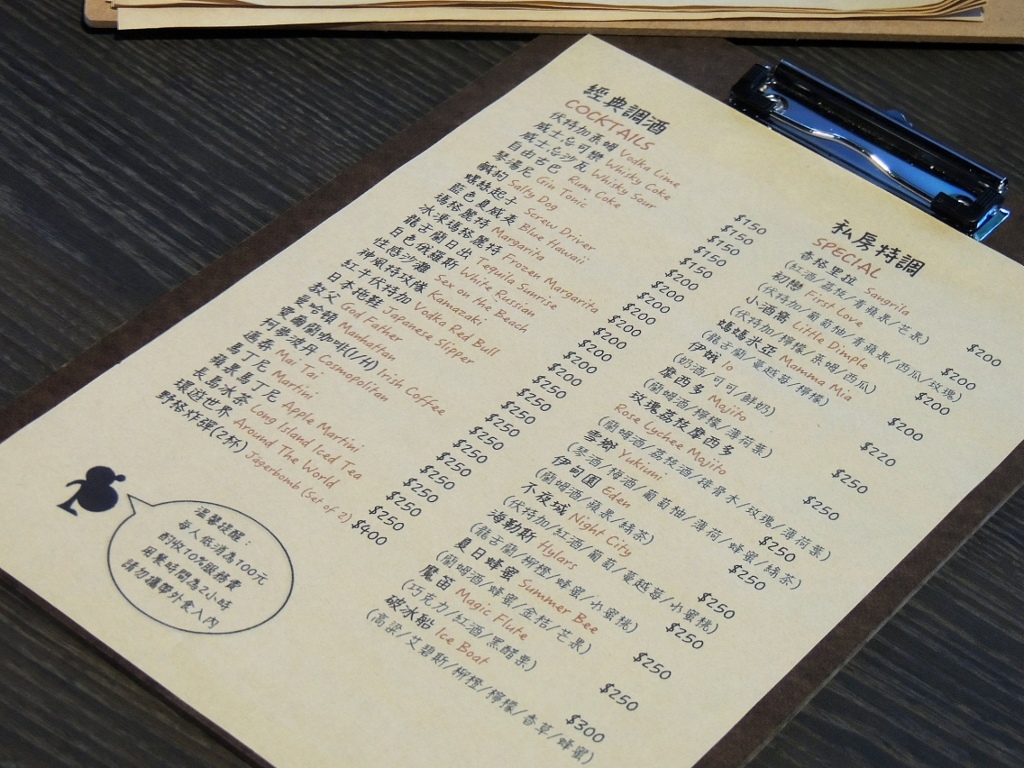 經典調酒
COCKTAILS
伏特加萊姆 Vodka Lime
威士忌可樂 Whisky Coke
威士忌沙瓦 Whisky Sour
自由古巴 Rum Coke
琴湯尼 Gin Tonic
鹹狗 Salty Dog
螺絲起子 Screw Driver
藍色夏威夷 Blue Hawaii
瑪格麗特 Margarita
冰凍瑪格麗特 Frozen Margarita
龍舌蘭日出 Tequila Sunrise
白色俄羅斯 White Russian
性感沙灘 Sex on the Beach
神風特攻隊 Kamazaki
紅牛伏特加 Vodka Red Bull
日本拖鞋 Japanese Slipper
教父 God Father
曼哈頓 Manhattan
愛爾蘭咖啡(I/H) Irish Coffee
柯夢波丹 Cosmopolitan
邁泰 Mai Tai
馬丁尼 Martini
蘋果馬丁尼 Apple Martini
長島冰茶 Long Island Iced Tea
環遊世界 Around The World
野格炸彈(2杯) Jagerbomb (set of 2)
$150
$150
$150
$150
$200
$200
$200
$200
$200
$200
$200
$250
$250
$250
$250
$250
$250
$250
$250
$250
$400
私房特調
SPECIAL
香格里拉 Sangrila $200
(紅酒/荔枝/青蘋果/花果)
初戀 First Love $200
(伏特加/葡萄柚/青蘋果/西瓜/玫瑰)
小酒窩 Little Dimple $200
(伏特加/檸檬/萊姆/西瓜)
媽媽米亞 Mamma Mia $200
(龍舌蘭/蔓越莓/檸檬)
伊娥 Io $220
(奶酒/可可/鮮奶)
摩西多 Mojito $250
(蘭姆酒/檸檬/薄荷葉)
玫瑰荔枝摩西多
Rose Lychee Mojito $250
(蘭姆酒/荔枝酒/接骨木/玫瑰/薄荷葉)
雪鄉 Yukiuni $250
(琴酒/梅酒/葡萄柚/薄荷/蜂蜜/綠茶)
伊甸園 Eden $250
(蘭姆酒/蘋果/綠茶)
不夜城 Night City $250
(伏特加/紅酒/葡萄/蔓越莓/水蜜桃)
海勒斯 Hylars $250
(龍舌蘭/柳橙/蜂蜜/水蜜桃)
夏日蜂蜜 Summer Bee $250
(蘭姆酒/蜂蜜/金桔/芒果)
魔笛 Magic Flute $250
(巧克力/紅酒/黑醋栗)
破冰船 Ice Boat $300
(高粱/艾碧斯/柳橙/檸檬/香草/蜂蜜)
溫馨提醒：
每人低消為100元
酌收10%服務費
用餐時間為2小時
請勿攜帶外食入內